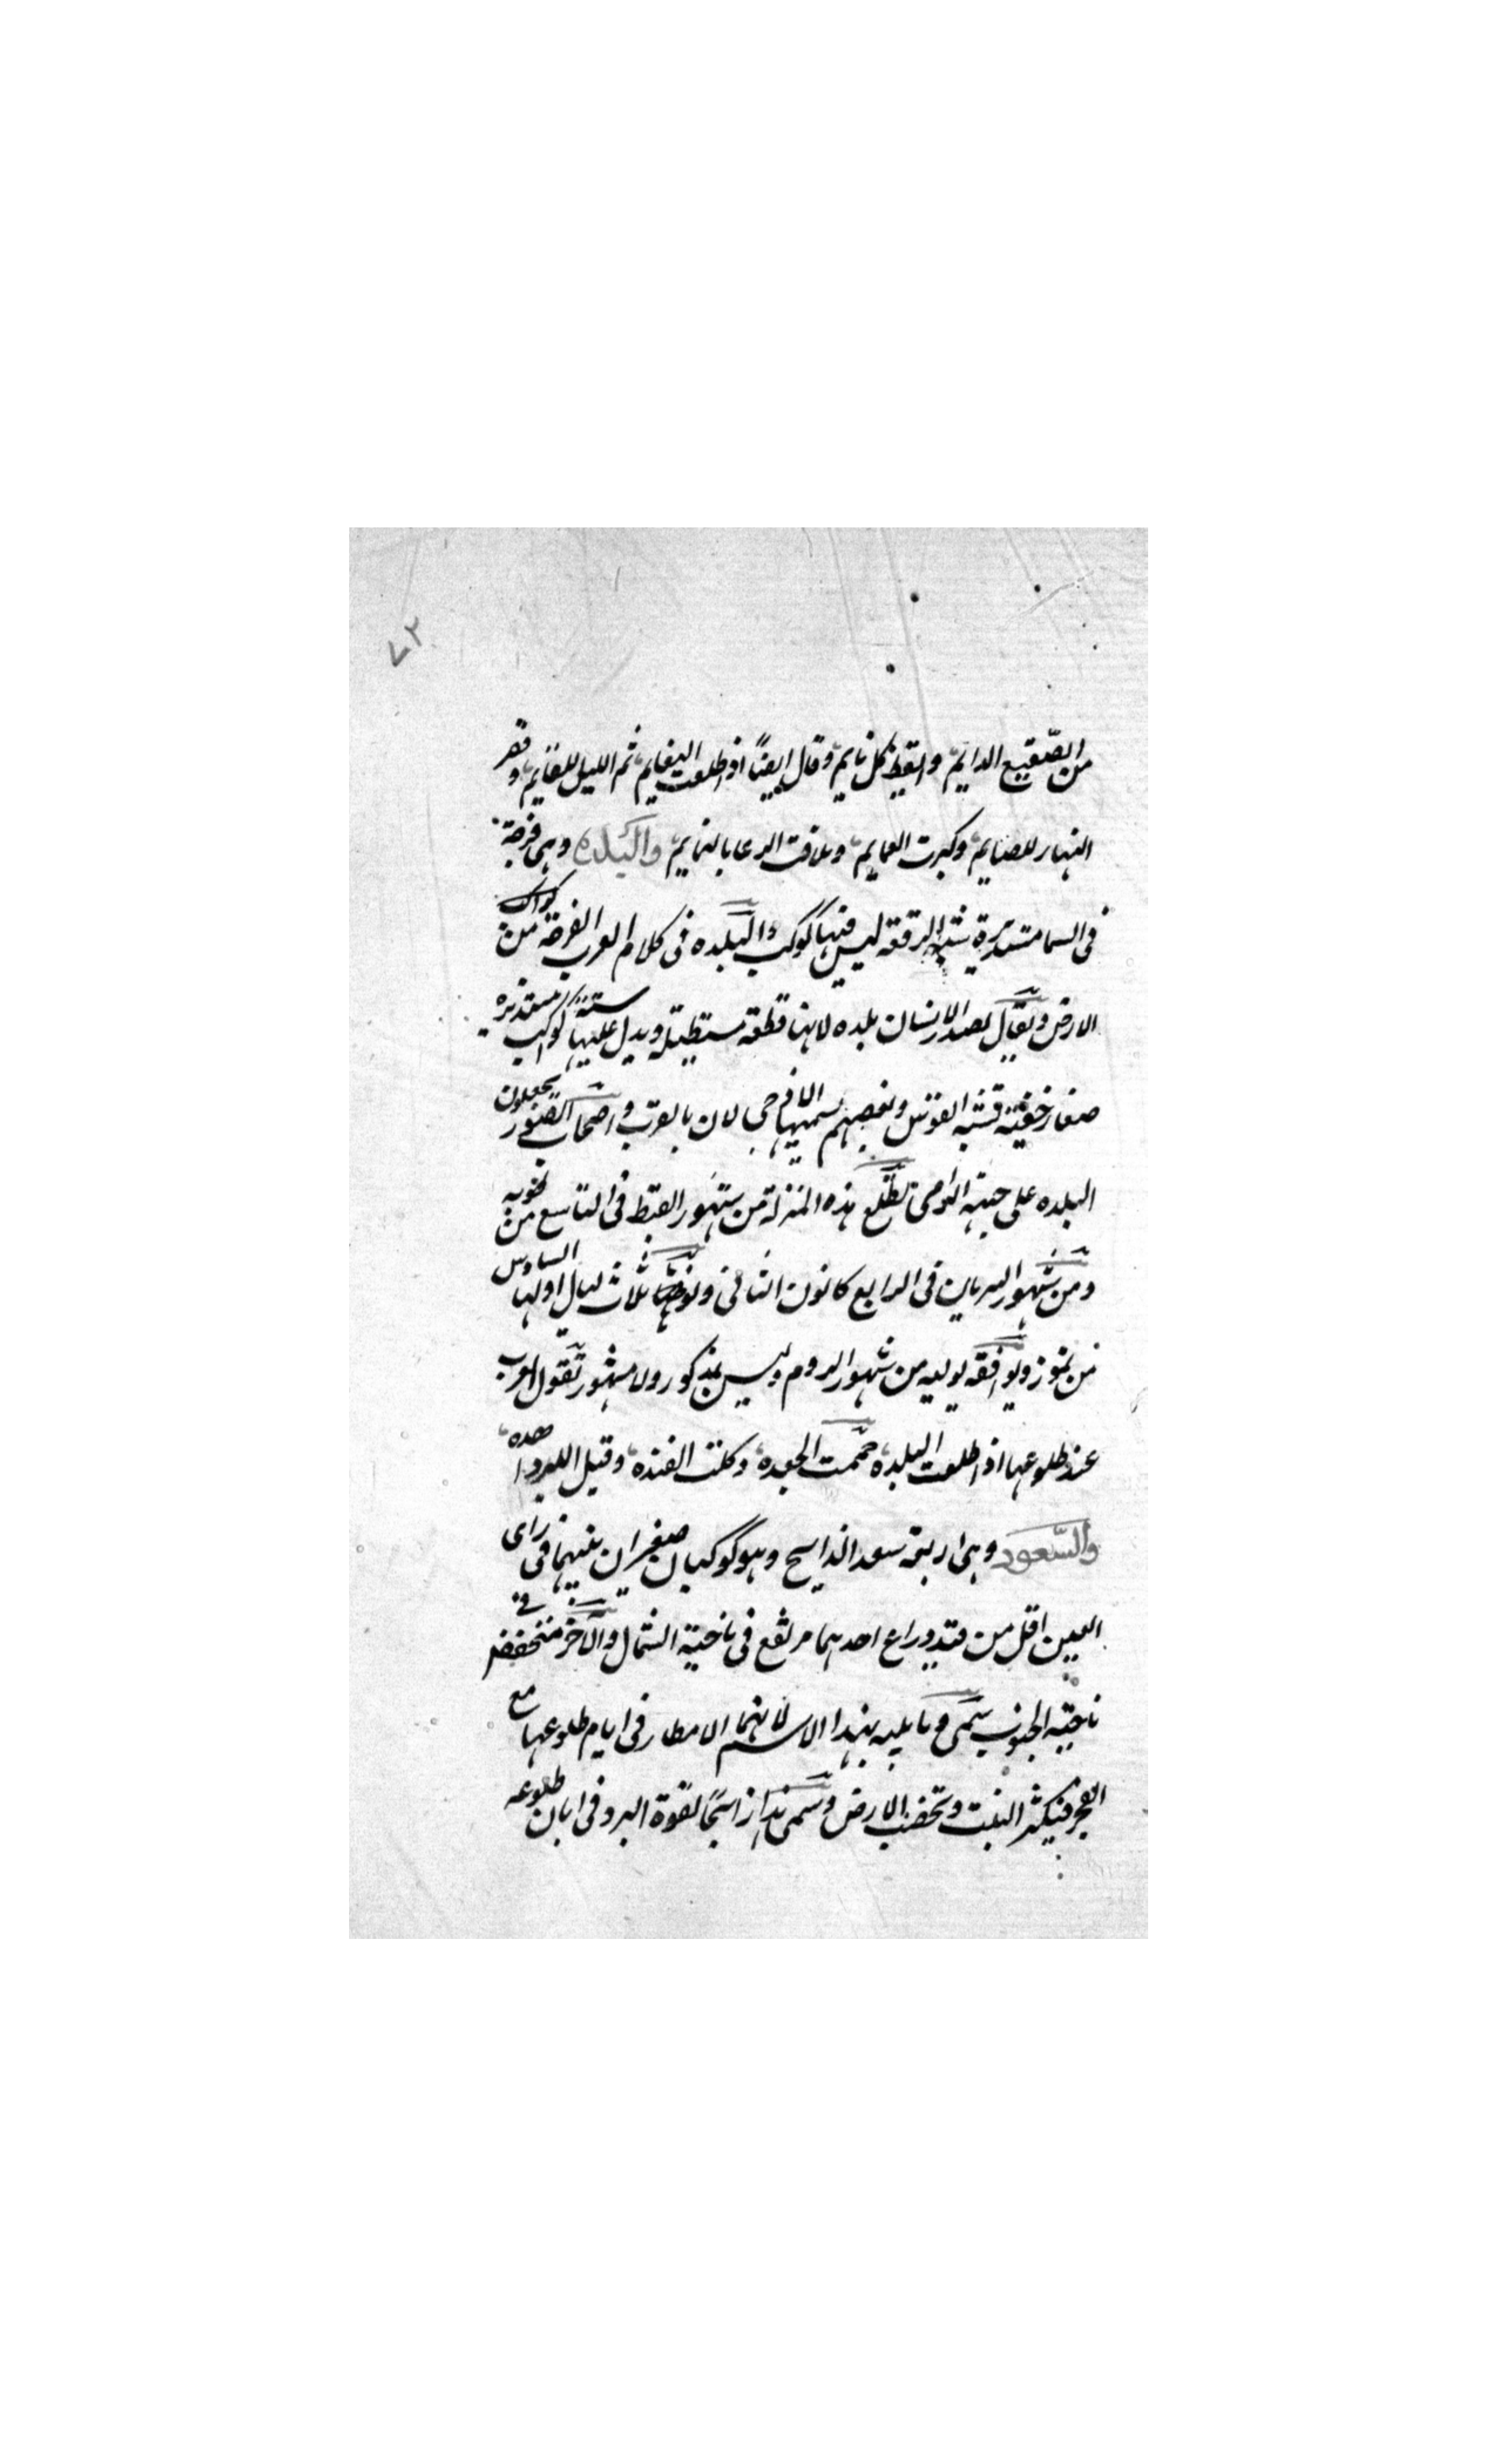 ٧٢
من الصقيع الدايم وايقظ كل نايم وقال ايضًا اذا طلعت النعايم ثم الليل للقايم وقصر
النهار للصايم وكبرت العمايم وتلاقت الرعا بالنمايم والبلده وهى فرجة
فى السما مستديرة شبه الرقعة ليس فيها كوكب والبلده فى كلام العرب الفرجة من كواكب
الارض ويقال لصدر الانسان بلده لانها قطعه مستطيله ويدل عليها ستة كواكب مستديره
صغار خفية تشبه القوس وبعضهم يسميها الادحى لان بالقرب واصحاب الصور يجعلون
البلده على جبهة الرامى تطلع هذه المنزلة من شهور القبط فى التاسع من طوبه
ومن شهور السريان فى الرابع كانون الثانى ونوءها ثلاث ليال اولها السادس
من تموز ويوافقه يوليه من شهور الروم وليس بمذكور ولا مشهور تقول العرب
عند طلوعها اذا طلعت البلده حممت الجعده وكلت القشده وقيل للبرد اهده
والسعود وهى اربعة سعد الذابح وهو كوكبان صغيران بينهما فى راى
العين اقل من قدر ذراع احدهما مرتفع فى ناحية الشمال والاخر منخفض فى
ناحية الجنوب سمى وما يليه بهذا الاسم لانهما الامطار فى ايام طلوعها مع
الفجر فيكثر النبت وتخضب الارض وسمى هذا ذابحًا لقوة البرد فى ابان طلوعه